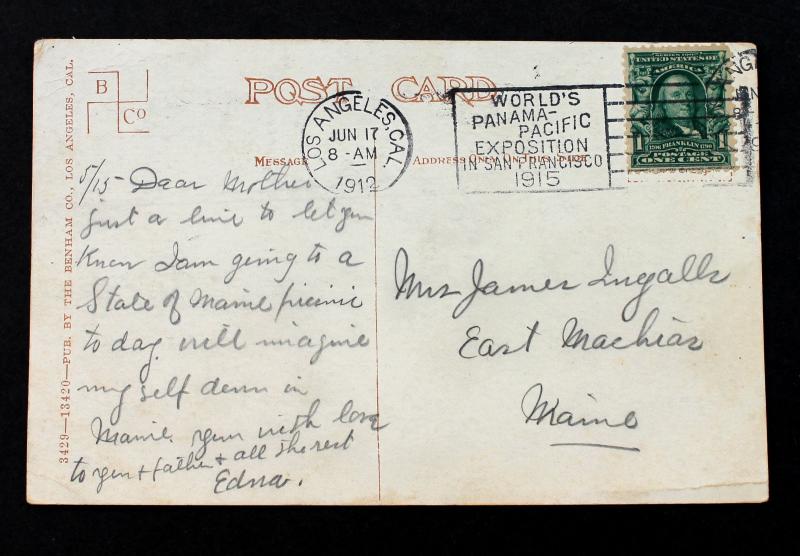 POST CARD
B
Co
3429—13420—PUB. BY THE BENHAM CO., LOS ANGELES, CAL.
LOS ANGELES, CAL.
JUN 17
8-AM
1912
WORLD'S
PANAMA-
PACIFIC
EXPOSITION
IN SAN FRANCISCO
1915
SERIES 1902
UNITED STATES OF
AMERICA
1 1
1706 FRANKLIN 1790
POSTAGE
ONE CENT
MESSAGE
ADDRESS ONLY ON THIS SIDE
6/15 Dear Mother
just a line to let you
know I am going to a
State of Maine picnic
to day. will imagine
my self down in
Maine. your with love
to you + father + all the rest
Edna.
Mrs James Ingalls
East Machias
Maine